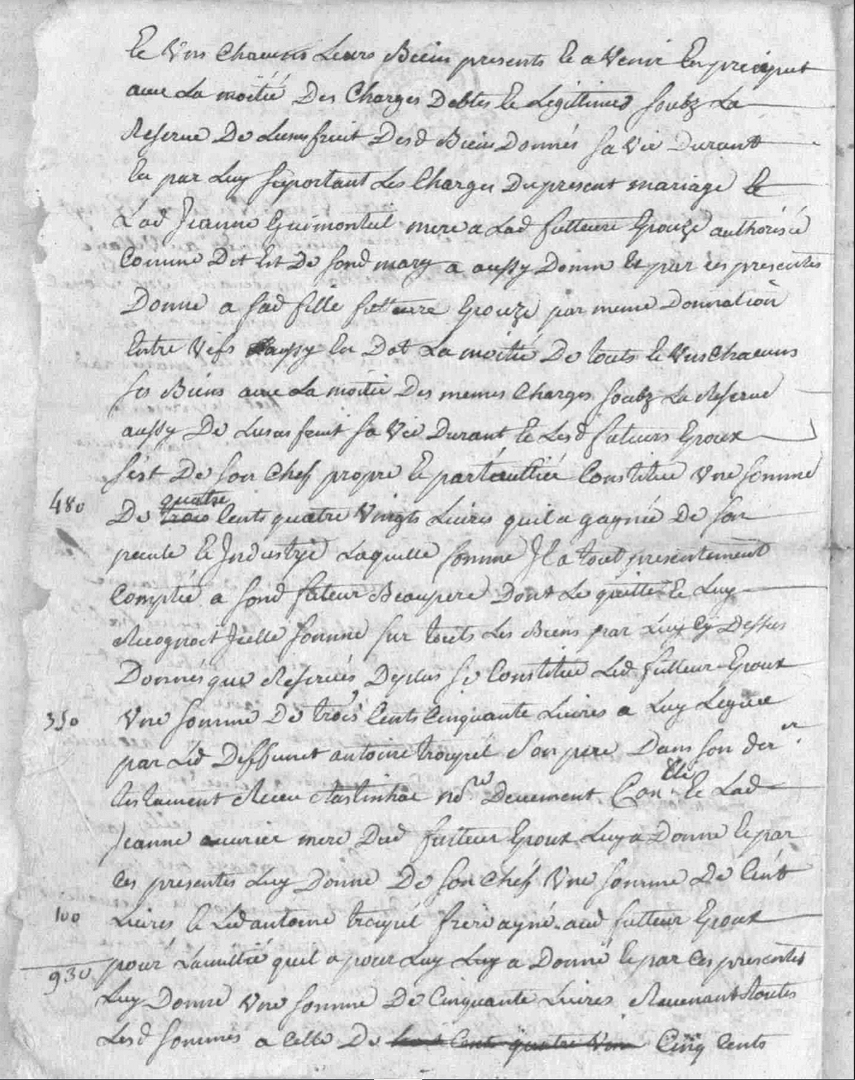 et uns chacuns leurs Biens presents et a venir En preciput
avec La moitié Des Charges Debtes et Legitimes soubz La
Reserve De Lusufruit Desd Biens Donnés sa vie Durant
En par Luy suportant Les Charges Du present mariage et
Lad Jeanne Guimonteil mere a Lad futteure Epouze authorisée
Comme Dit Est De sond mary a aussy Donné Et par ces presentes
Donne a sad fille futteure Epouze par meme Donnation
Entre vifs aussy En Dot La moitié De touts et uns chacuns
ses Biens avec La moitié Des memes Charges soubz La Reserve
aussy De Lusufruit sa vie Durant et Lesd futeurs Epoux
sest De son Chef propre et particullier Constitué une somme
480 De trois quatre Cents quatre vingts Livres quil a gagnée De son
pecule et Industrie Laquelle somme Il a tout presentement
Comptée a sond futeur Beaupere Dont Le quitte et Luy
Recognoit Icelle somme sur touts Les Biens par Luy Cy Dessus
Donnés que Reservés Deplus se Constitue Led futteur Epoux
350 une somme De trois Cents Cinquante Livres a Luy Leguée
par Led Deffunct antoine troupel son pere Dans son der er
testament Receu nore Deuement Con Elle et Lad
Jeanne mere Dud futteur Epoux Luy a Donné et par
Ces presentes Luy Donne De son Chef une somme De Cent
100 Livres et Led antoine troupel frere ayné aud futteur Epoux
930 pour Lamitié quil a pour Luy Luy a Donné et par Ces presentes
Luy Donne une somme De Cinquante Livres Revenant toutes
Lesd sommes a Celle De Cents quatre vin Cinq Cents